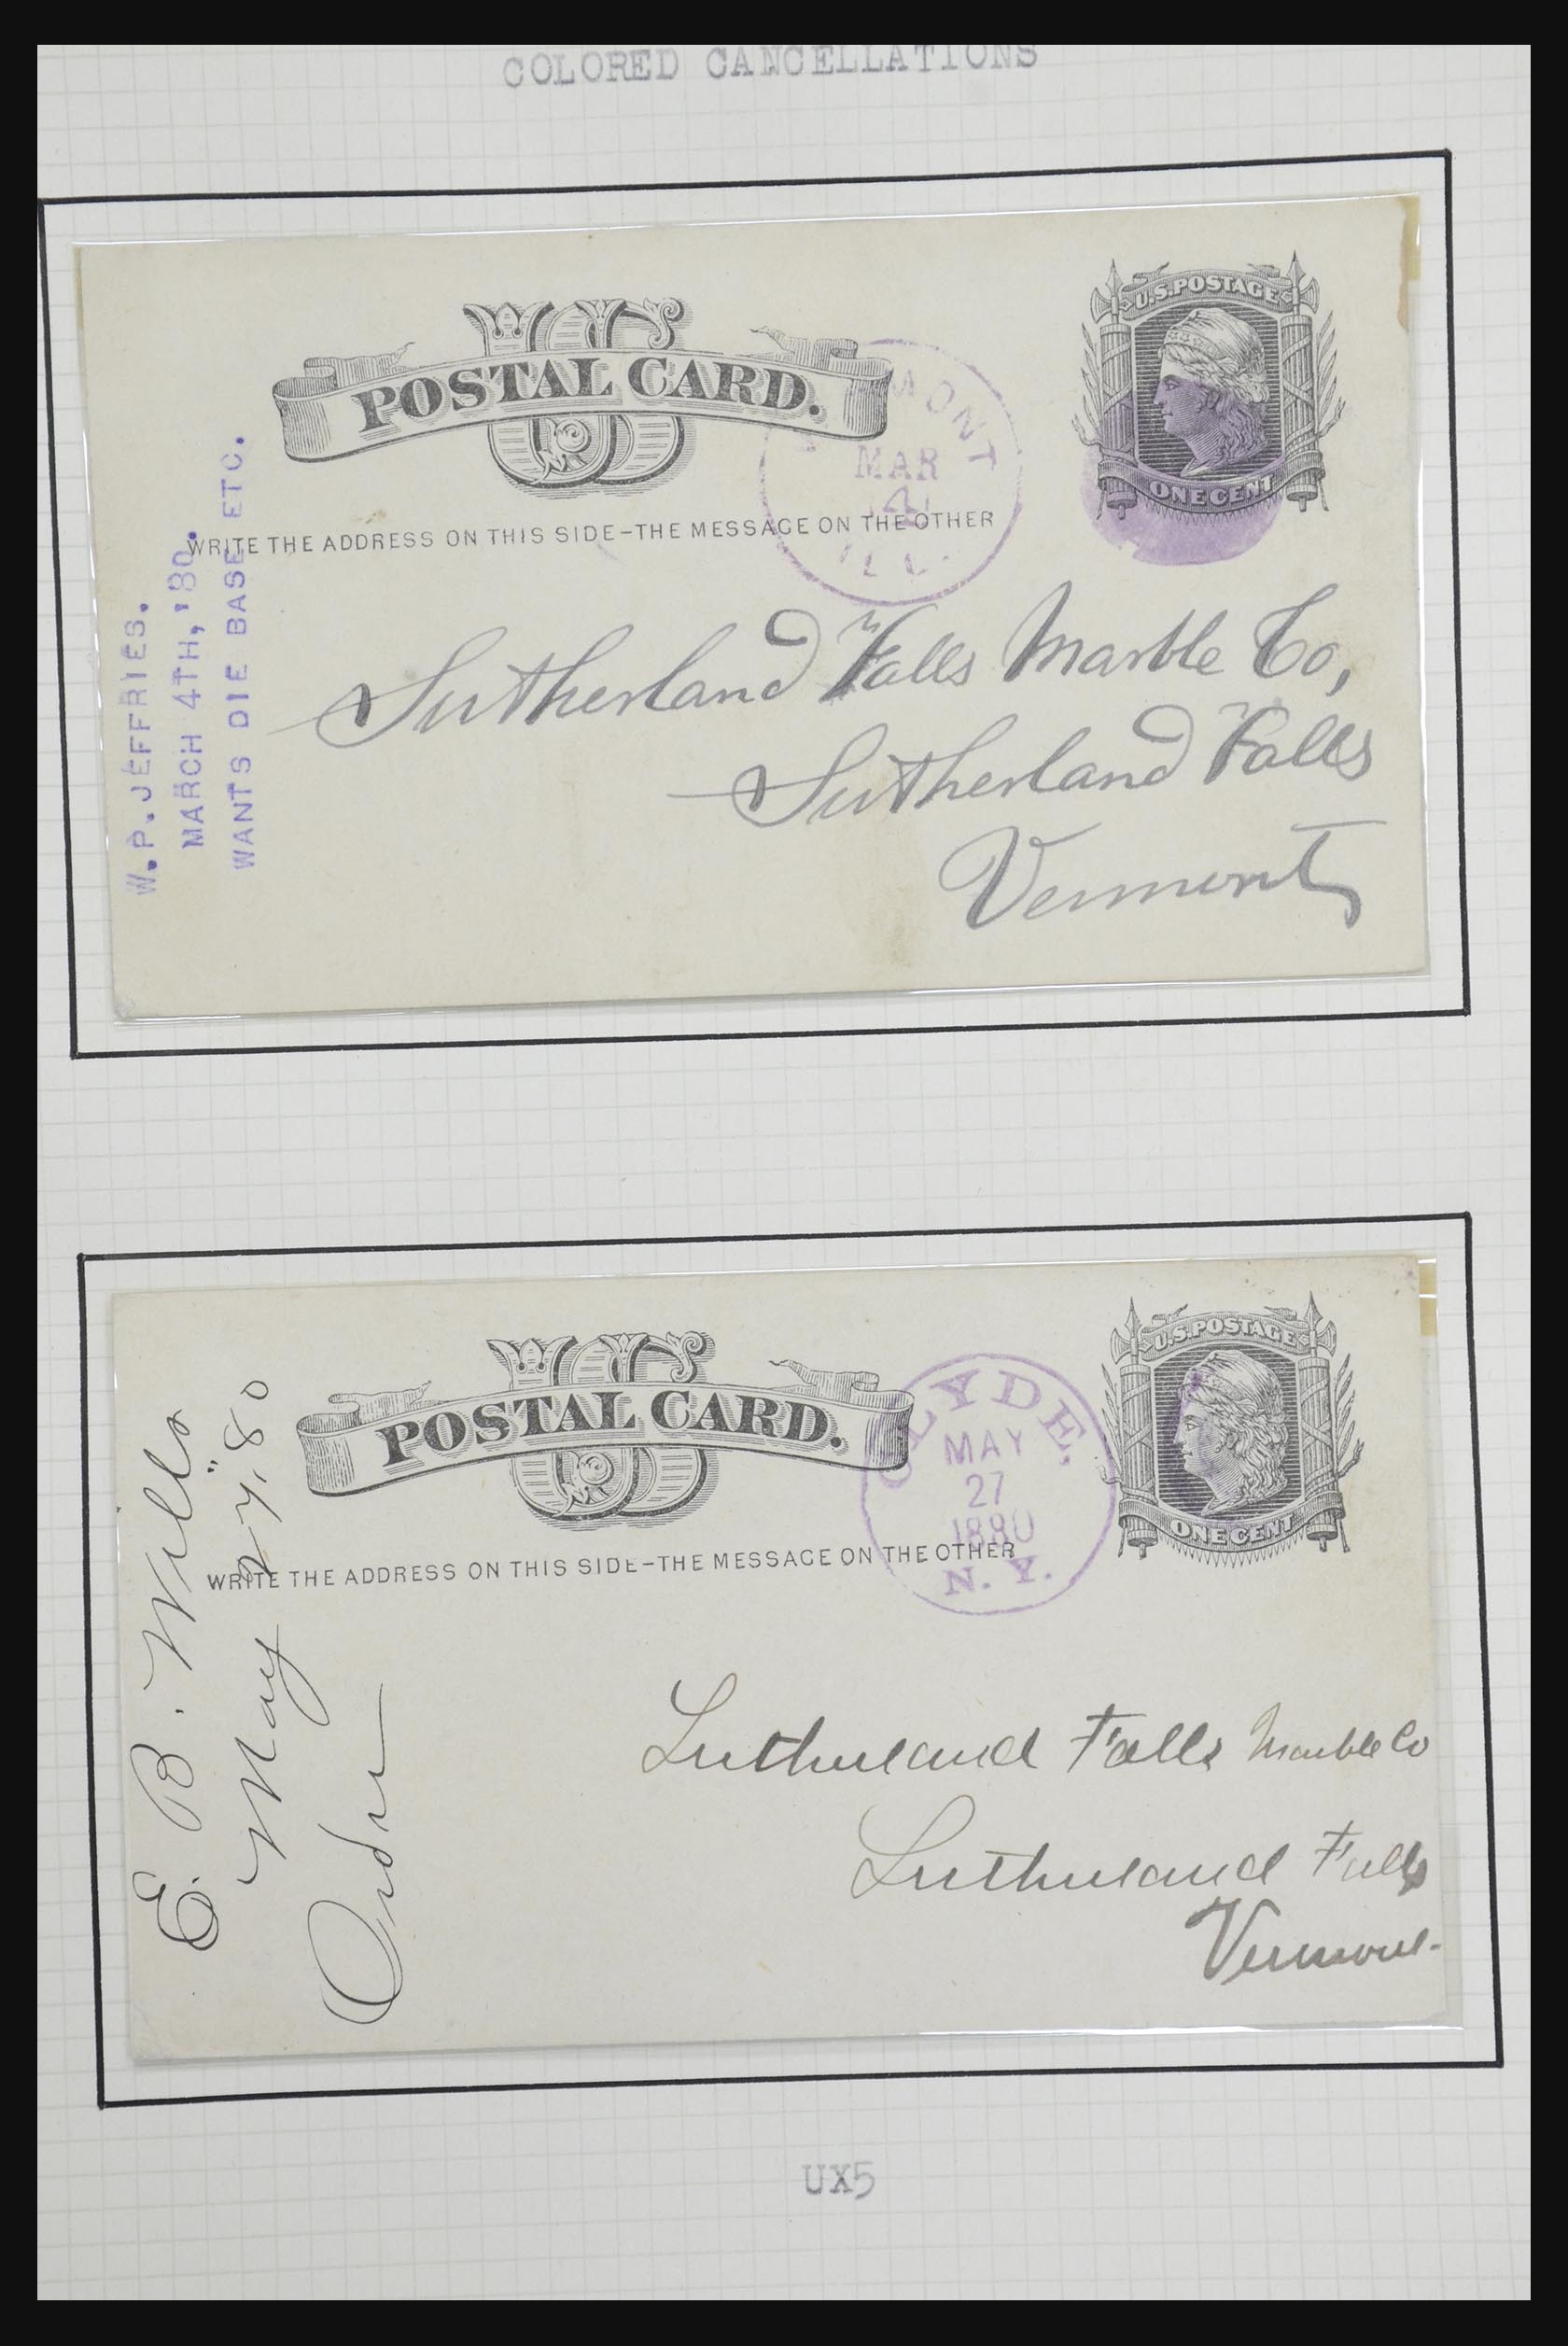 COLORED CANCELLATIONS
US
POSTAL CARD.
U.S.POSTAGE
ONE CENT
MONT
MAR
4
ILL.
WRITE THE ADDRESS ON THIS SIDE-THE MESSAGE ON THE OTHER
W.P.JEFFRIES.
MARCH 4TH,'80.
WANTS DIE BASE ETC.
Sutherland Falls Marble Co,
Sutherland Falls
Vermont
US
POSTAL CARD.
U.S.POSTAGE
ONE CENT
CLYDE,
MAY
27
1880
N. Y.
WRITE THE ADDRESS ON THIS SIDE-THE MESSAGE ON THE OTHER
E. B. Wills
May 27. 80
Order
Sutherland Falls Marble Co
Sutherland Falls
Vermont.
UX5